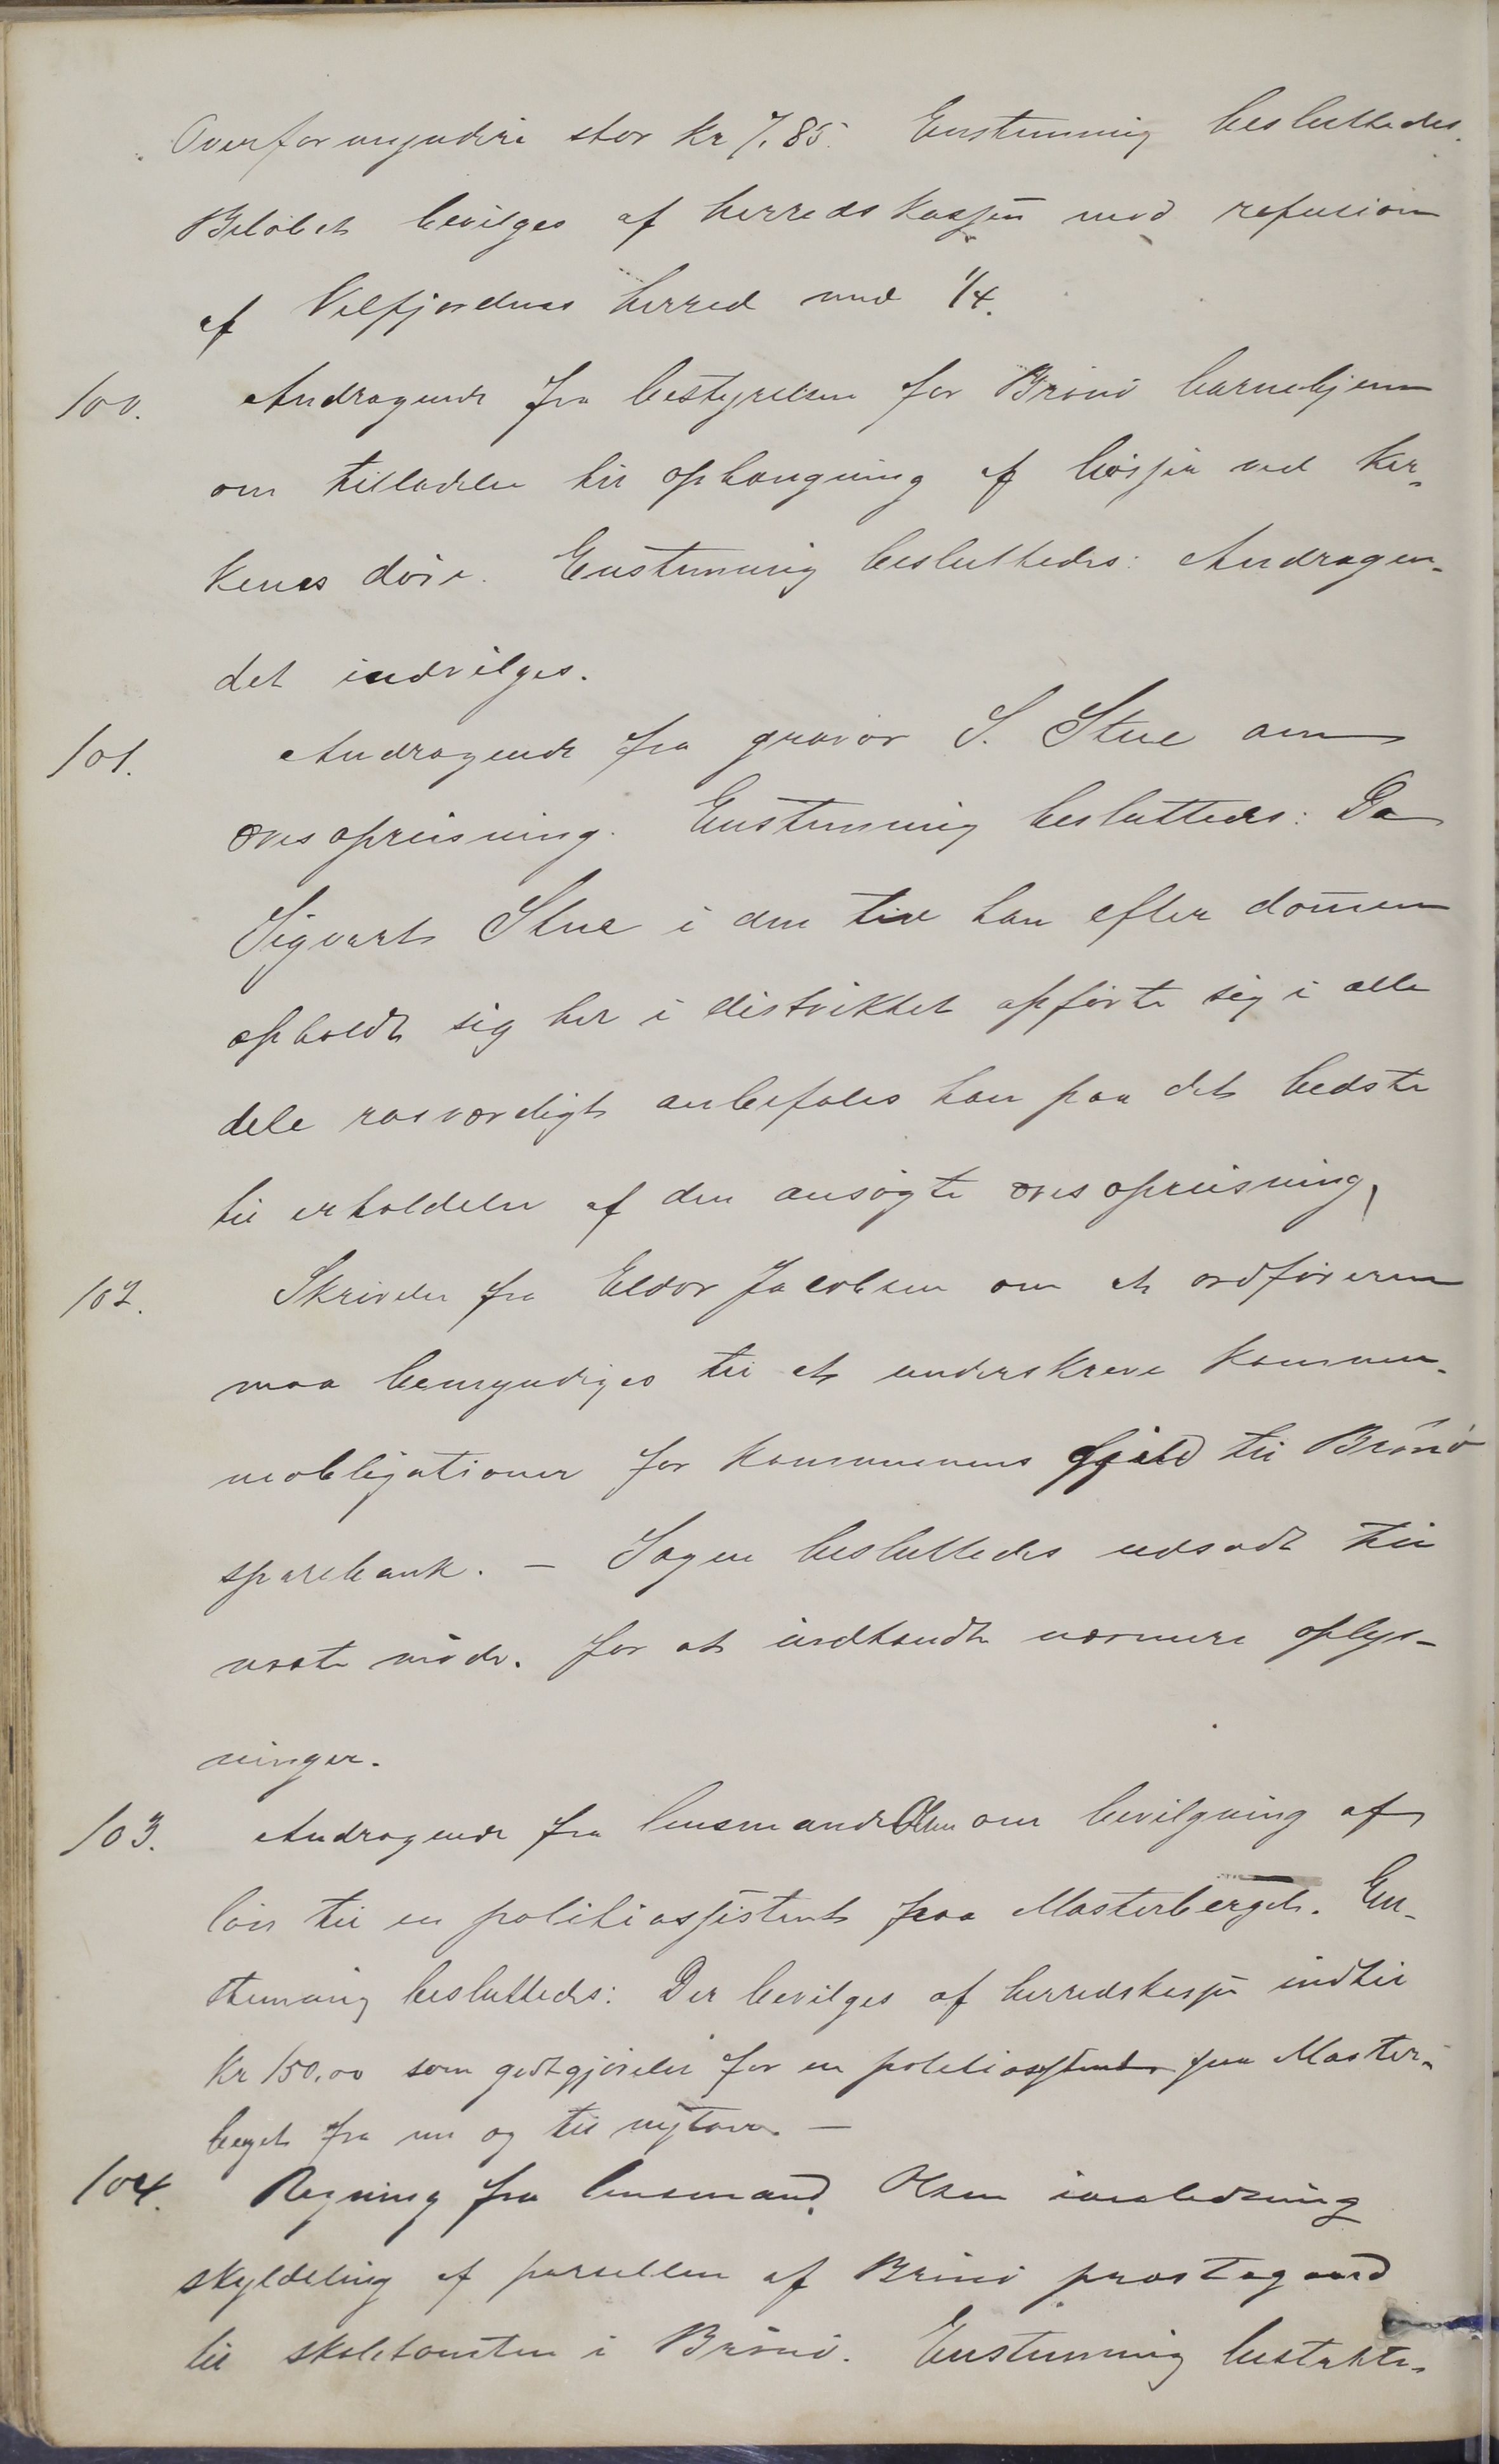 Overformynderi stor kr 7,85. Enstemmig besluttedes.
Beløbet bevilges af herredskassen mod refusion
af Velfjordens herred med 1/4.
100. Andragende fra bestyrelsen for Brønø barnehjem
om tilladelse til ophængning af bøsser ved kir-
kenes døre. Enstemmig besluttedes: Andragen-
det indvilges.
101. Andragende fra gravør S. Stue om
æresopreisning. Enstemmig besluttedes: Da
Sigvart Stue i den tid han efter dommen
opholdt sig her i distriktet opførte sig i alle
dele rosværdigt anbefales han paa det bedste
til erholdelse af den ansøgte æresopreisning,
102. Skrivelse fra Eldor Jacobsen om at ordføreren
maa bemyndiges til at underskrive kommu-
neobligationer for kommunens gjeld til Brønø
sparebank. – Sagen besluttedes udsadt til
næste møde. for at indhendte nærmere oplys-
ninger.
103. Andragende fra lensmand Olsen om bevilgning af
løn til en politiassistent paa Mosterberget. En-
stemmig besluttedes: Der bevilges af herredskassen indtil
Kr 150,00 som godtgjørelse for en politiassistent paa Moster-
berget fra nu og til nytaar. –
104. Regning fra lensmand Olsen i anledning
skyldeling af parsellen af Brønø prestegaard
til skoletomten i Brønø. Enstemmig beslutte-